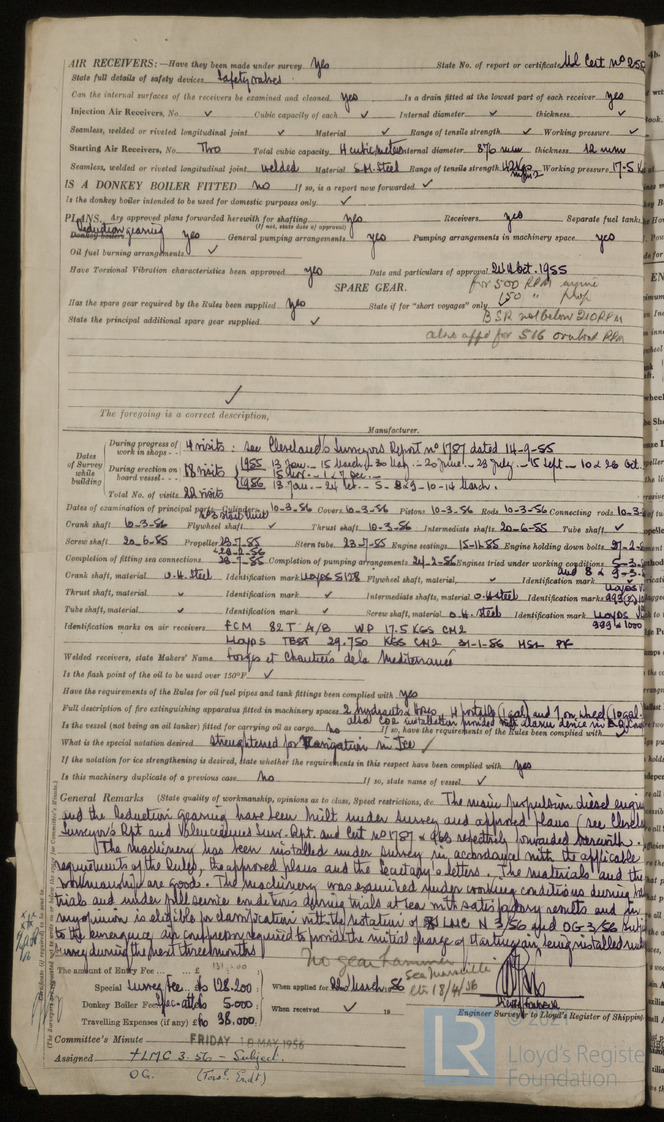 AIR RECEIVERS:—Have they been made under survey Yes State No. of report or certificate
State full details of safety devices Safety valves
Can the internal surfaces of the receivers be examined and cleaned yes Is a drain fitted at the lowest part of each receiver yes
Injection Air Receivers, No. ✓ Cubic capacity of each ✓ Internal diameter ✓ thickness ✓
Seamless, welded or riveted longitudinal joint ✓ Material ✓ Range of tensile strength ✓ Working pressure ✓
Starting Air Receivers, No. Two Total cubic capacity 4 cubic meters Internal diameter 876 m/m thickness 12 m/m
Seamless, welded or riveted longitudinal joint welded Material S.M. Steel Range of tensile strength 42 Kgs m/m2 Working pressure 17.5 K
IS A DONKEY BOILER FITTED no If so, is a report now forwarded ✓
Is the donkey boiler intended to be used for domestic purposes only ✓
PLANS. Are approved plans forwarded herewith for shafting yes Receivers yes Separate fuel tanks
(If not, state date of approval)
Reduction gearing
Donkey boilers yes General pumping arrangements yes Pumping arrangements in machinery space yes
Oil fuel burning arrangements ✓
Have Torsional Vibration characteristics been approved yes Date and particulars of approval 21st Oct. 1955
SPARE GEAR. for 500 RPM engine
150 " prop
Has the spare gear required by the Rules been supplied Yes State if for "short voyages" only
BSR not below 210 RPM
State the principal additional spare gear supplied ✓
also appd for 516 RPM
✓
The foregoing is a correct description,
Manufacturer.
Dates of Survey while building
During progress of work in shops - - 4 visits : see Cleveland's Surveyors Report no 1787 dated 14-9-55
During erection on board vessel - - - 18 visits 1955 13 Jan. - 15 March - 30 - 20 June - 23 July - 15 Sept - 10 & 26 Oct.
15 Nov. - 1 & 7 Dec. -
1956 13 Jan. - 24 - 5 - 8 & 9 - 10 - 14 March.
Total No. of visits 22 visits
Dates of examination of principal parts—Cylinders 10-3-56 Covers 10-3-56 Pistons 10-3-56 Rods 10-3-56 Connecting rods 10-3
Crank shaft 10-3-56 Flywheel shaft ✓ Thrust shaft 10-3-56 Intermediate shafts 20-6-55 Tube shaft ✓
Screw shaft 20-6-55 Propeller 23-7-55 Stern tube 23-7-55 Engine seatings 15-11-55 Engine holding down bolts
Completion of fitting sea connections 23-7-55 Completion of pumping arrangements 24-2-56 Engines tried under working conditions 5-3
and 8 & 9-3
Crank shaft, material O.H. Steel Identification mark LLOYDS 5178 Flywheel shaft, material ✓ Identification mark ✓
Thrust shaft, material ✓ Identification mark ✓ Intermediate shafts, material O.H. Steel Identification marks
Tube shaft, material ✓ Identification mark ✓ Screw shaft, material O.H. Steel Identification mark LLOYDS
999 & 1000
Identification marks on air receivers FCM 82T A/B WP 17.5 KGS CM2
LLOYDS TEST 29.750 KGS CM2 31-1-56
Welded receivers, state Makers' Name Forges et Chantiers de la Mediterranée
Is the flash point of the oil to be used over 150°F. ✓
Have the requirements of the Rules for oil fuel pipes and tank fittings been complied with yes
Full description of fire extinguishing apparatus fitted in machinery spaces 2 hydrants & Hoses, 4 portable (1 gal) and 1 on wheel (10 gal.
also CO2 installation provided with alarm device in
Is the vessel (not being an oil tanker) fitted for carrying oil as cargo no If so, have the requirements of the Rules been complied with ✓
What is the special notation desired Strengthened for Navigation in Ice ✓
If the notation for ice strengthening is desired, state whether the requirements in this respect have been complied with yes
Is this machinery duplicate of a previous case no If so, state name of vessel ✓
General Remarks (State quality of workmanship, opinions as to class, Speed restrictions, &c. The main propulsion diesel engine
and the Reduction gearing have been built under survey and approved plans (see
Surveyors Rpt and Valenciennes Surv. Rpt. and Cert no 1787 & forwarded herewith.
The machinery has been installed under survey in accordance with the applicable
requirements of the Rules, the approved plans and the Secretary's letters. The materials and the
workmanship are good. The machinery was examined under working conditions during
trials and under full service conditions during trials at sea with satisfactory results and in
my opinion is eligible for classification with the notation of LMC N 3/56 and OG 3/56 subject
to the emergency air compressor required to provide the initial charge of starting air being installed
survey during the next three months
No gear hammer
See Marseille
ltr 18/4/56
The amount of Entry Fee ... £
Special Survey Fee ... 128.200 When applied for March 1956
Donkey Boiler Fee 5.000
Travelling Expenses (if any) 38.000 When received ✓ 19
Engineer Surveyor to Lloyd's Register of Shipping
Committee's Minute FRIDAY 18 MAY 1956
Assigned +LMC 3.56 - Subject.
OG. (Tors. Endt)
© 2021
LR
Lloyd's Registe
Foundation